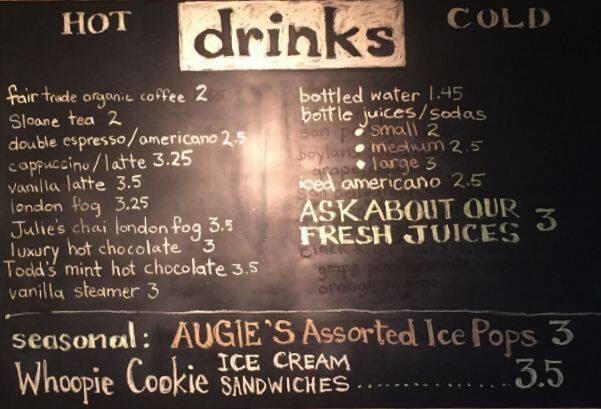 HOT drinks COLD
fair trade organic coffee 2
Sloane tea 2
double espresso/americano 2.5
cappuccino/latte 3.25
vanilla latte 3.5
london fog 3.25
Julie's chai london fog 3.5
luxury hot chocolate 3
Todd's mint hot chocolate 3.5
vanilla steamer 3
bottled water 1.45
bottle juices/sodas
• small 2
• medium 2.5
• large 3
iced americano 2.5
ASK ABOUT OUR
FRESH JUICES 3
seasonal: AUGIE'S Assorted Ice Pops 3
Whoopie Cookie ICE CREAM
SANDWICHES .................. 3.5